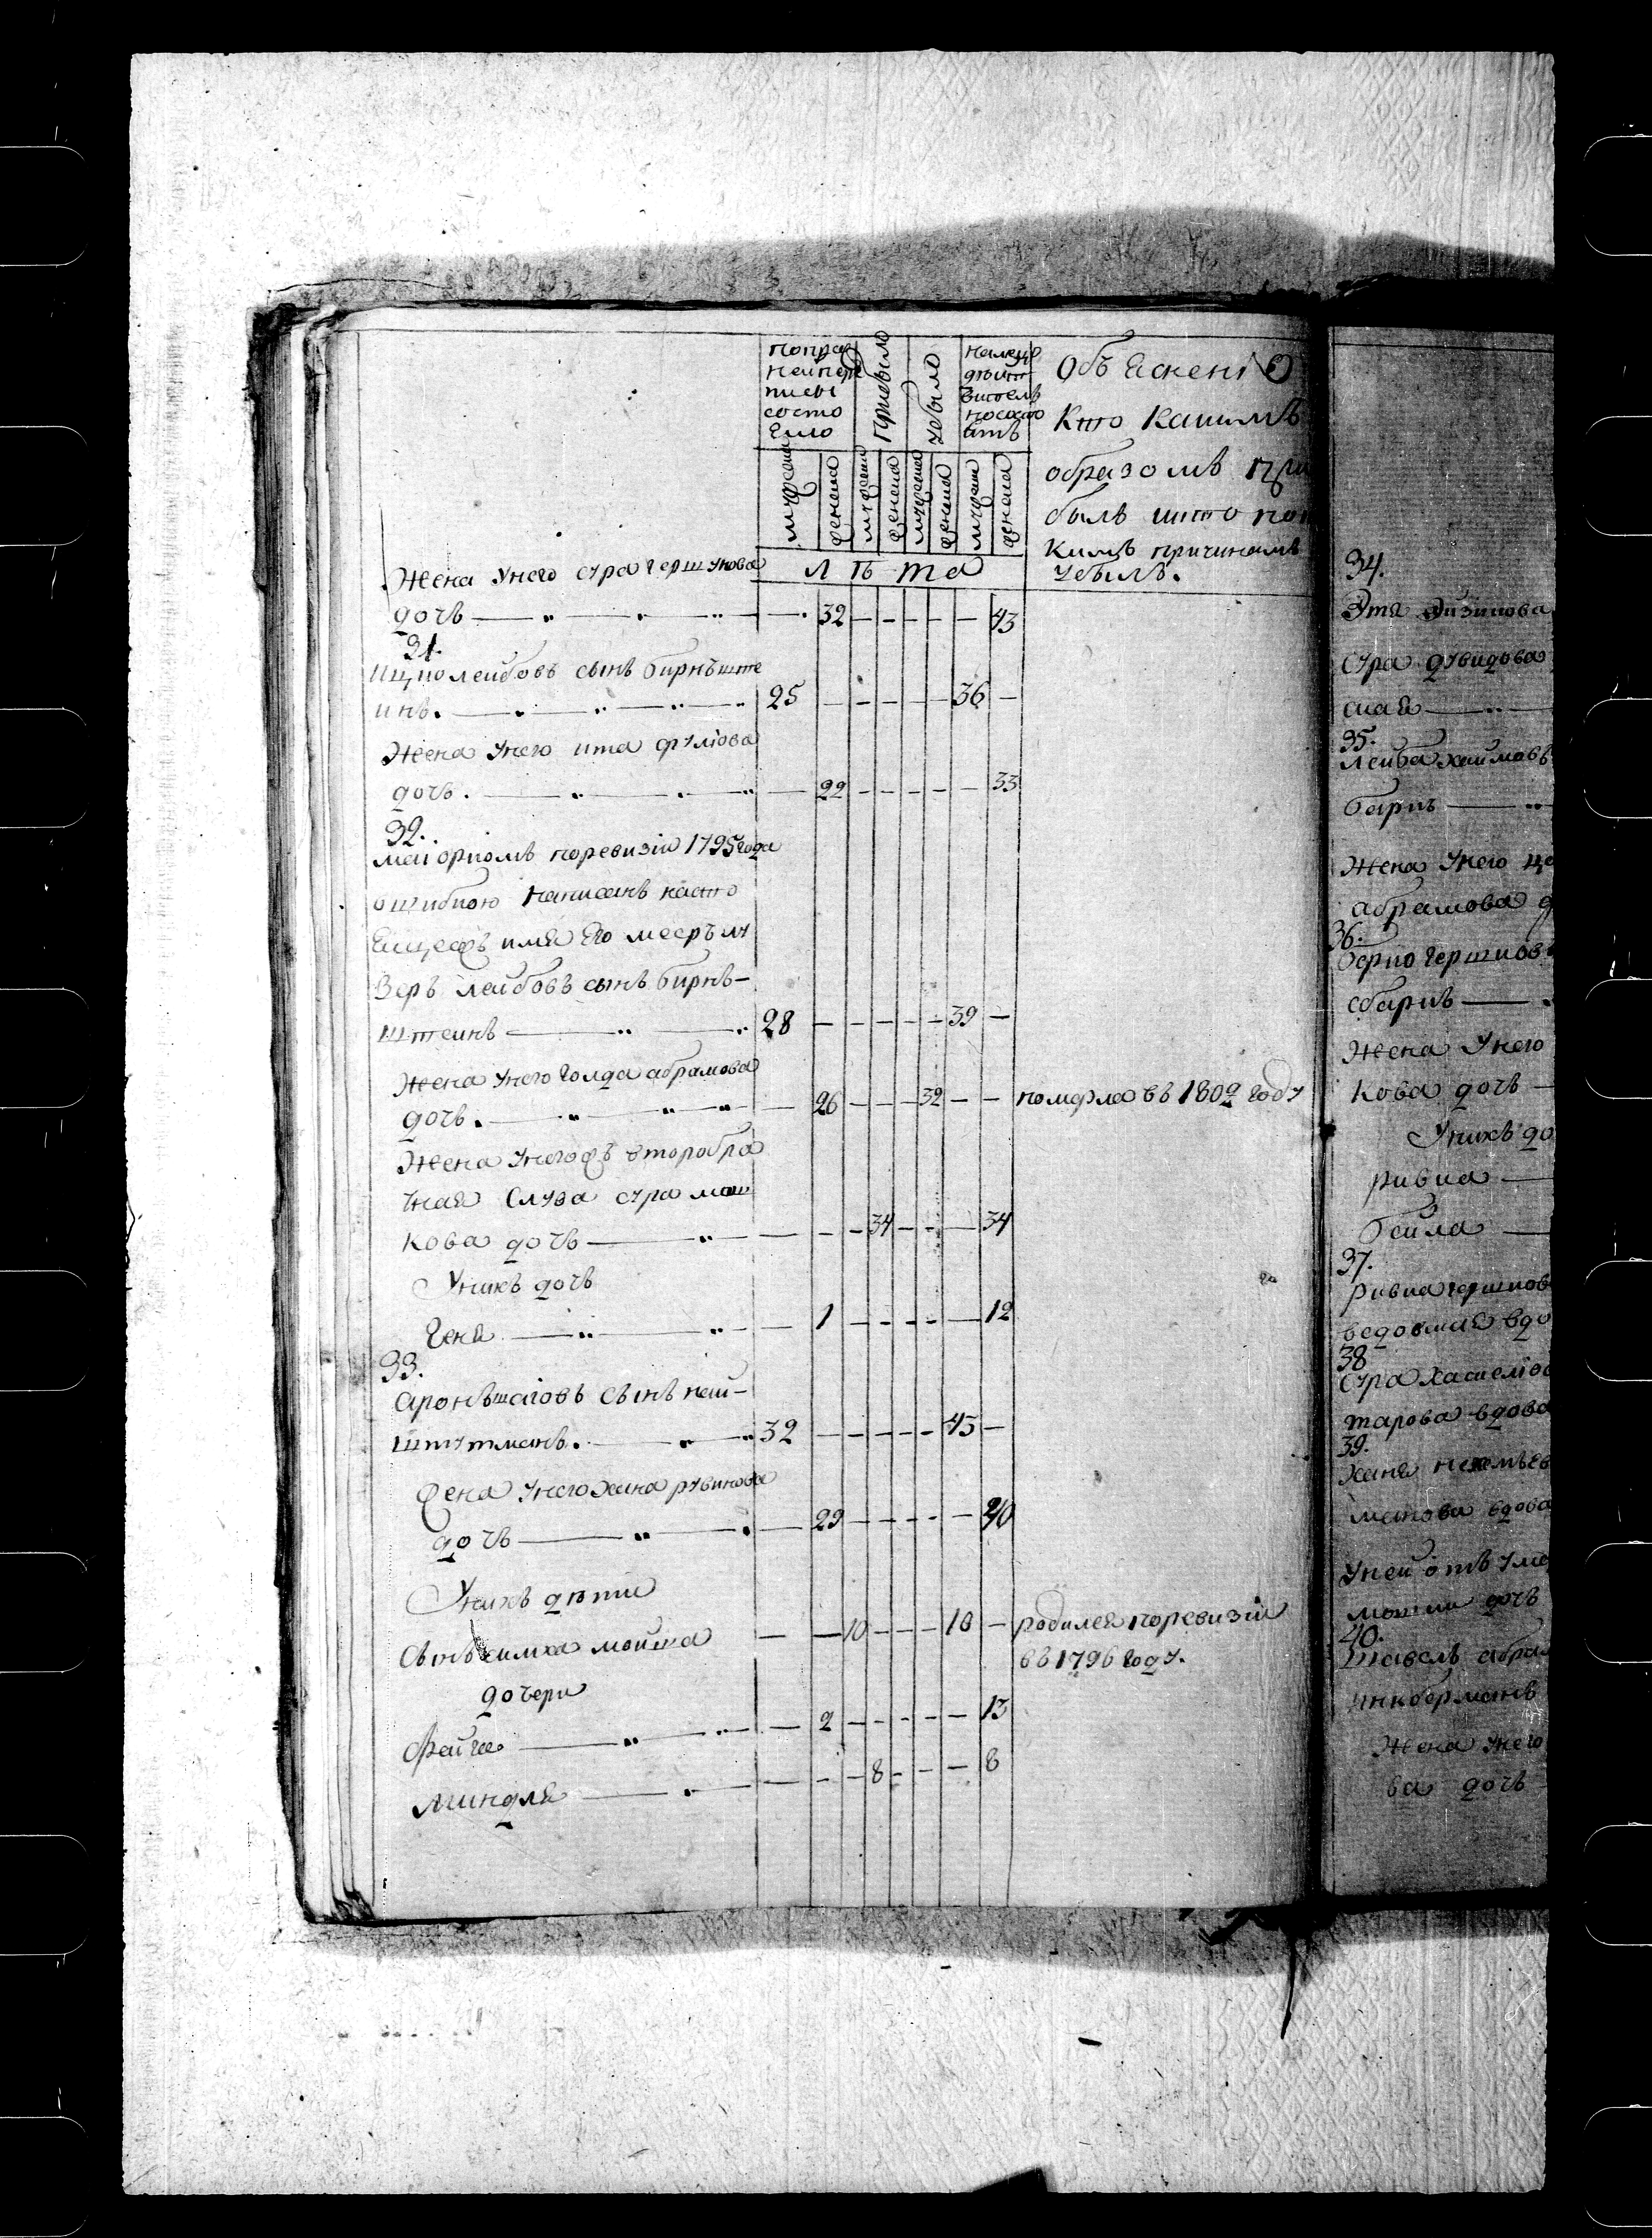 попре
ней пере
писы
состо
Яло
прибыло
убыло
налицо
дѣист
вителѣ
но состо
Ятъ
Объ Ясненiе
Кто Какимъ
образомъ при
былъ што по
Кимъ причинамъ
убылъ.
мужеска
женска
мужеска
женска
мужеска
женска
мужеска
женска
лѣта
Жена Унего сура гершунова
дочь — „ — „ — „ — 32 — — — — — 43
31.
Ицко леибовъ сынъ бирнъште
инъ. — „ — „ — „ 25 — — — — — 36 —
Жена Унего ита фулiова
дочь. — „ — „ — „ — 22 — — — — — 33
32.
меи оркомъ поревизiи 1795 года
ошибкою написанъ насто
Ящеежъ имя Его мееръ ли
Зеръ леибовъ сынъ бирнъ-
штеинъ — „ — „ 28 — — — — — 39 —
Жена Унего Голда абрамова
дочь. — „ — „ — „ — 26 — — — 32 — — померла въ 1802 году
Жена Унегожъ второбра
чная Слува сура мош
кова дочь — „ — — — 34 — — — 34
Унихъ дочь
Геня — „ — „ — 1 — — — — — 12
33.
Аронъ шаiовъ сынъ неи-
штутманъ. — „ — „ 32 — — — — — 43 —
Жена Унего Хана рувинова
дочь — „ — „ — 29 — — — — — 40
Унихъ дѣти
Сынъ симха моиша — — 10 — — — 10 — родился поревизiи
въ 1796 году.
дочери
Фаига — „ — „ — 2 — — — — — 13
Миндля — „ — — — 8 — — — 8
34.
Этя Аизикова
Сура дувидова
ская — „ —
35.
Леиба хаимовъ
барнъ — „
Жена Унего це
абрамова д
36.
берко гершковъ
сбарнъ — „
Жена Унего
кова дочь —
Унихъ до
ривка —
беила —
37.
Ривка гершков
ведовская вдо
38
Сура хаскелiов
тарова вдова
39.
Ханя нехемъев
манова вдова
Унеи отъ Уме
мошки дочь
40.
Шавель абра
инкберманъ
Жена Унего
ва дочь —